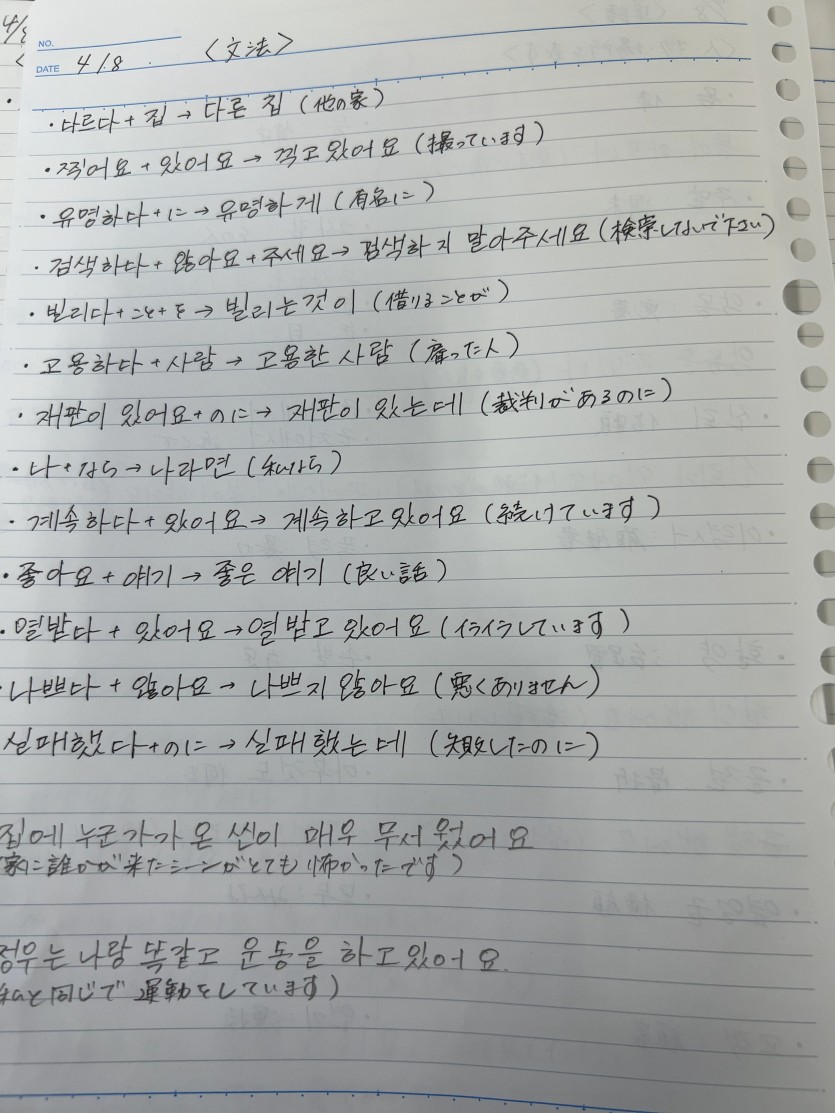 4/8
NO.
DATE 4/8 〈文法〉
・다르다 + 집 → 다른 집 (他の家)
・찍어요 + 있어요 → 찍고 있어요 (撮っています)
・유명하다 + に → 유명하게 (有名に)
・검색하다 + 않아요 + 주세요 → 검색하지 말아주세요 (検索しないで下さい)
・빌리다 + こと + を → 빌리는것이 (借りることが)
・고용하다 + 사람 → 고용한 사람 (雇った人)
・재판이 있어요 + のに → 재판이 있는데 (裁判があるのに)
・나 + なら → 나라면 (私なら)
・계속하다 + 있어요 → 계속하고 있어요 (続けています)
・좋아요 + 얘기 → 좋은 얘기 (良い話)
・열받다 + 있어요 → 열받고 있어요 (イライラしています)
・나쁘다 + 않아요 → 나쁘지 않아요 (悪くありません)
실패했다 + のに → 실패했는데 (失敗したのに)
집에 누군가가 온 씬이 매우 무서웠어요
(家に誰かが来たシーンがとても怖かったです)
정우는 나랑 똑같고 운동을 하고있어요.
私と同じで運動をしています)